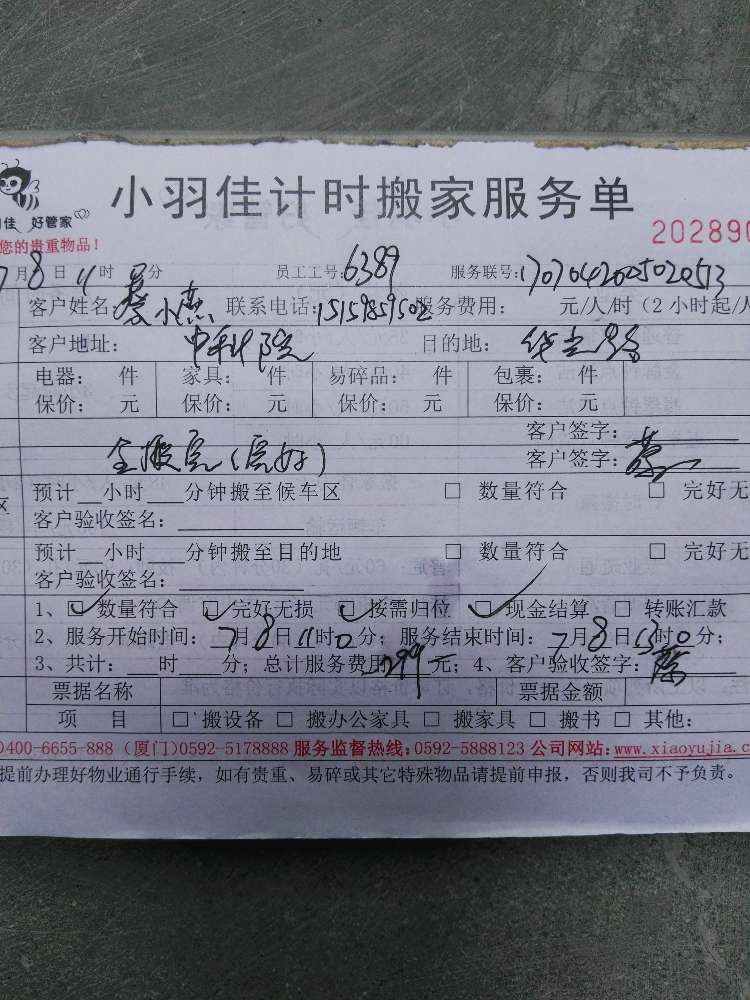 佳 好管家
小羽佳计时搬家服务单
您的贵重物品！
202890
7月8日11时 分 员工工号：6389 服务联号：1707042005020513
客户姓名： 小杰 联系电话：15159859502 服务费用： 元/人/时（2小时起/人
客户地址： 中科院 目的地：
电器： 件 家具： 件 易碎品： 件 包裹： 件
保价： 元 保价： 元 保价： 元 保价： 元
客户签字：
全搬完（完好） 客户签字：
区 预计__小时___分钟搬至候车区 □ 数量符合 □ 完好无
客户验收签名：
预计__小时___分钟搬至目的地 □ 数量符合 □ 完好无
客户验收签名：
1、☑数量符合 ☑完好无损 ☑按需归位 ☑现金结算 □ 转账汇款
2、服务开始时间：7月8日11时0分；服务结束时间：7月8日13时0分；
3、共计：___时___分；总计服务费用299元；4、客户验收签字：
票据名称 票据金额
项 目 □ 搬设备 □ 搬办公家具 □ 搬家具 □ 搬书 □ 其他：
0400-6655-888（厦门）0592-5178888 服务监督热线：0592-5888123 公司网站：www.xiaoyujia.c
提前办理好物业通行手续，如有贵重、易碎或其它特殊物品请提前申报，否则我司不予负责。